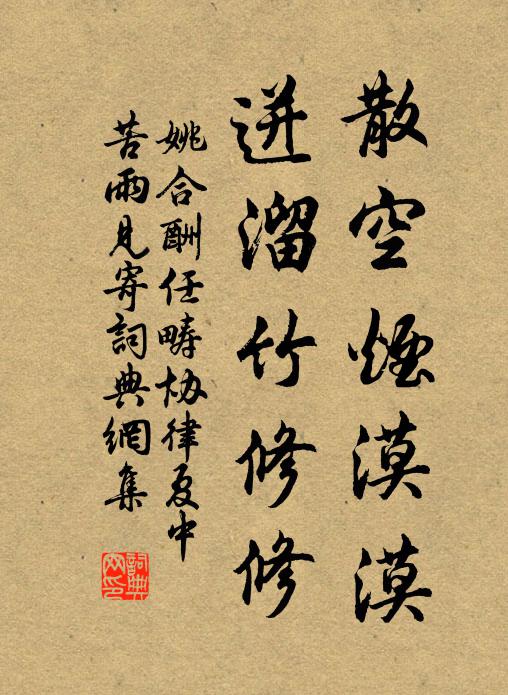 散空煙漠漠
迸溜竹修修
姚合酬任疇协律夏中
苦雨見寄詞典網集
詞典
网印